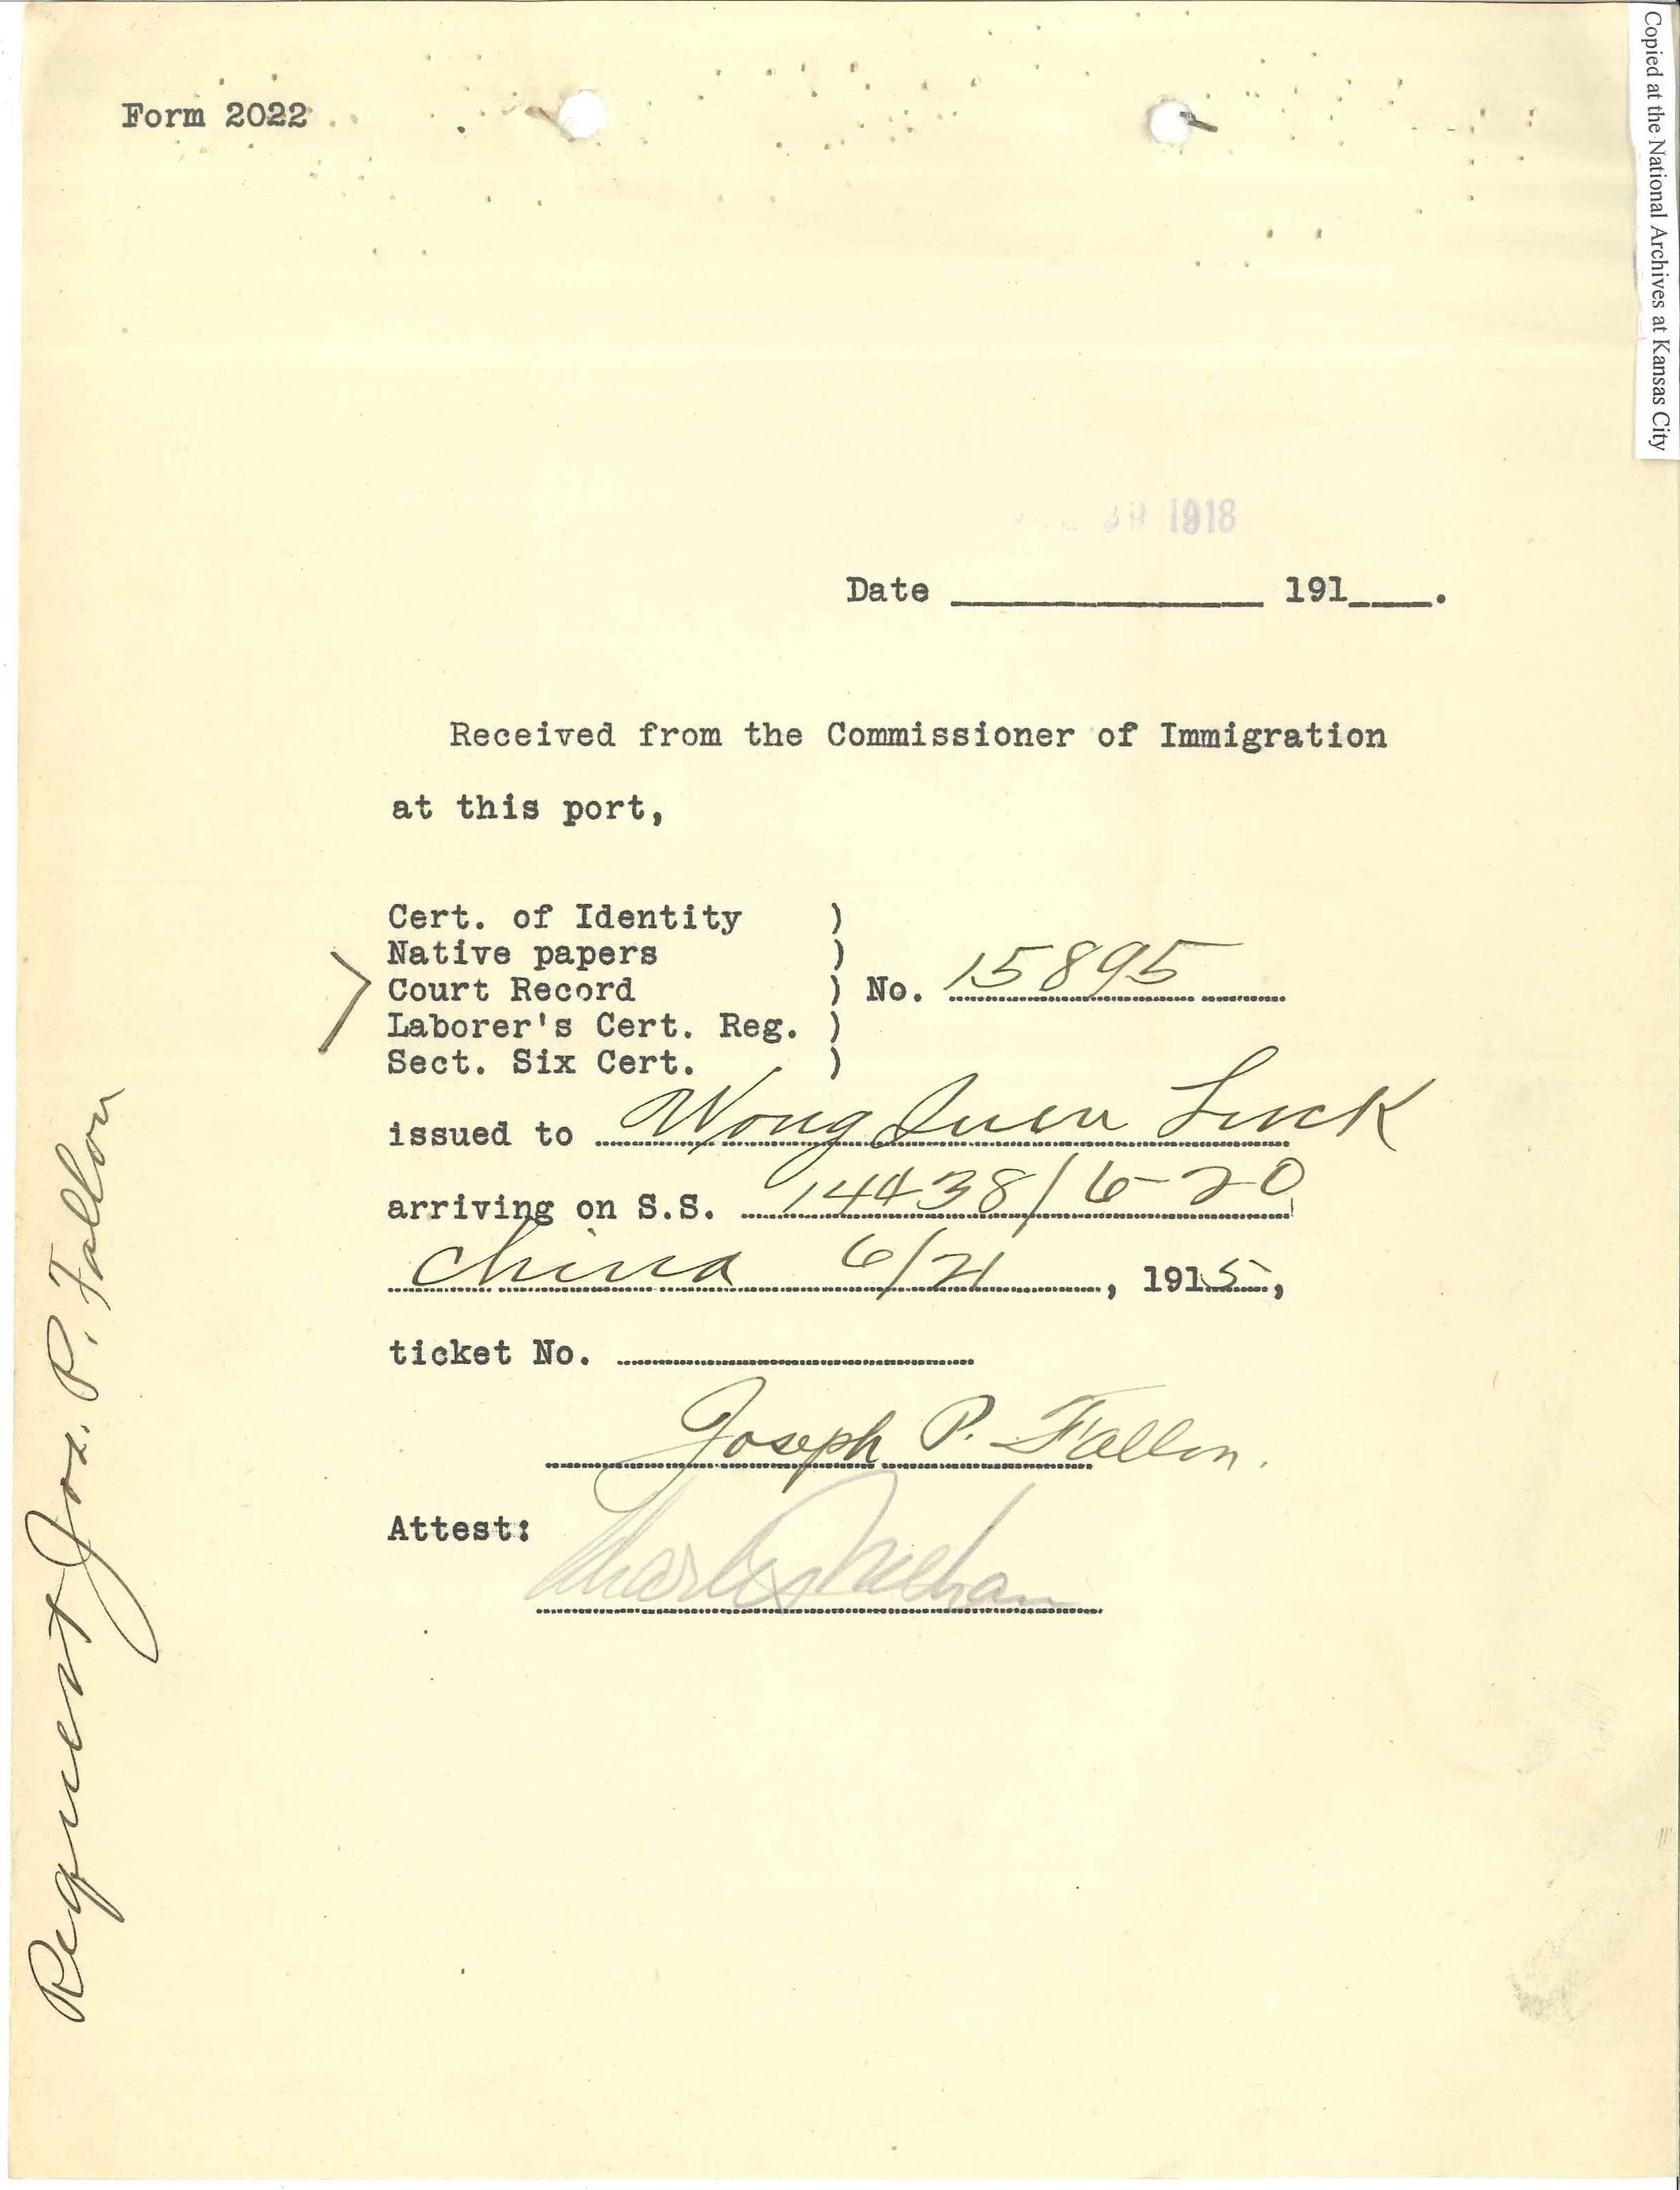 Form 2022
Copied at the National Archives at Kansas City
29 1918
Date 191 .
Received from the Commissioner of Immigration
at this port,
Cert. of Identity )
Native papers )
Court Record ) No. 15895
Laborer's Cert. Reg. )
Sect. Six Cert. )
issued to Wong Luck
arriving on S.S. 14438/6-20
China 6/21, 1915,
ticket No.
Joseph P. Fallon.
Attest:
Charles Mehan
Request Jos. P. Fallon